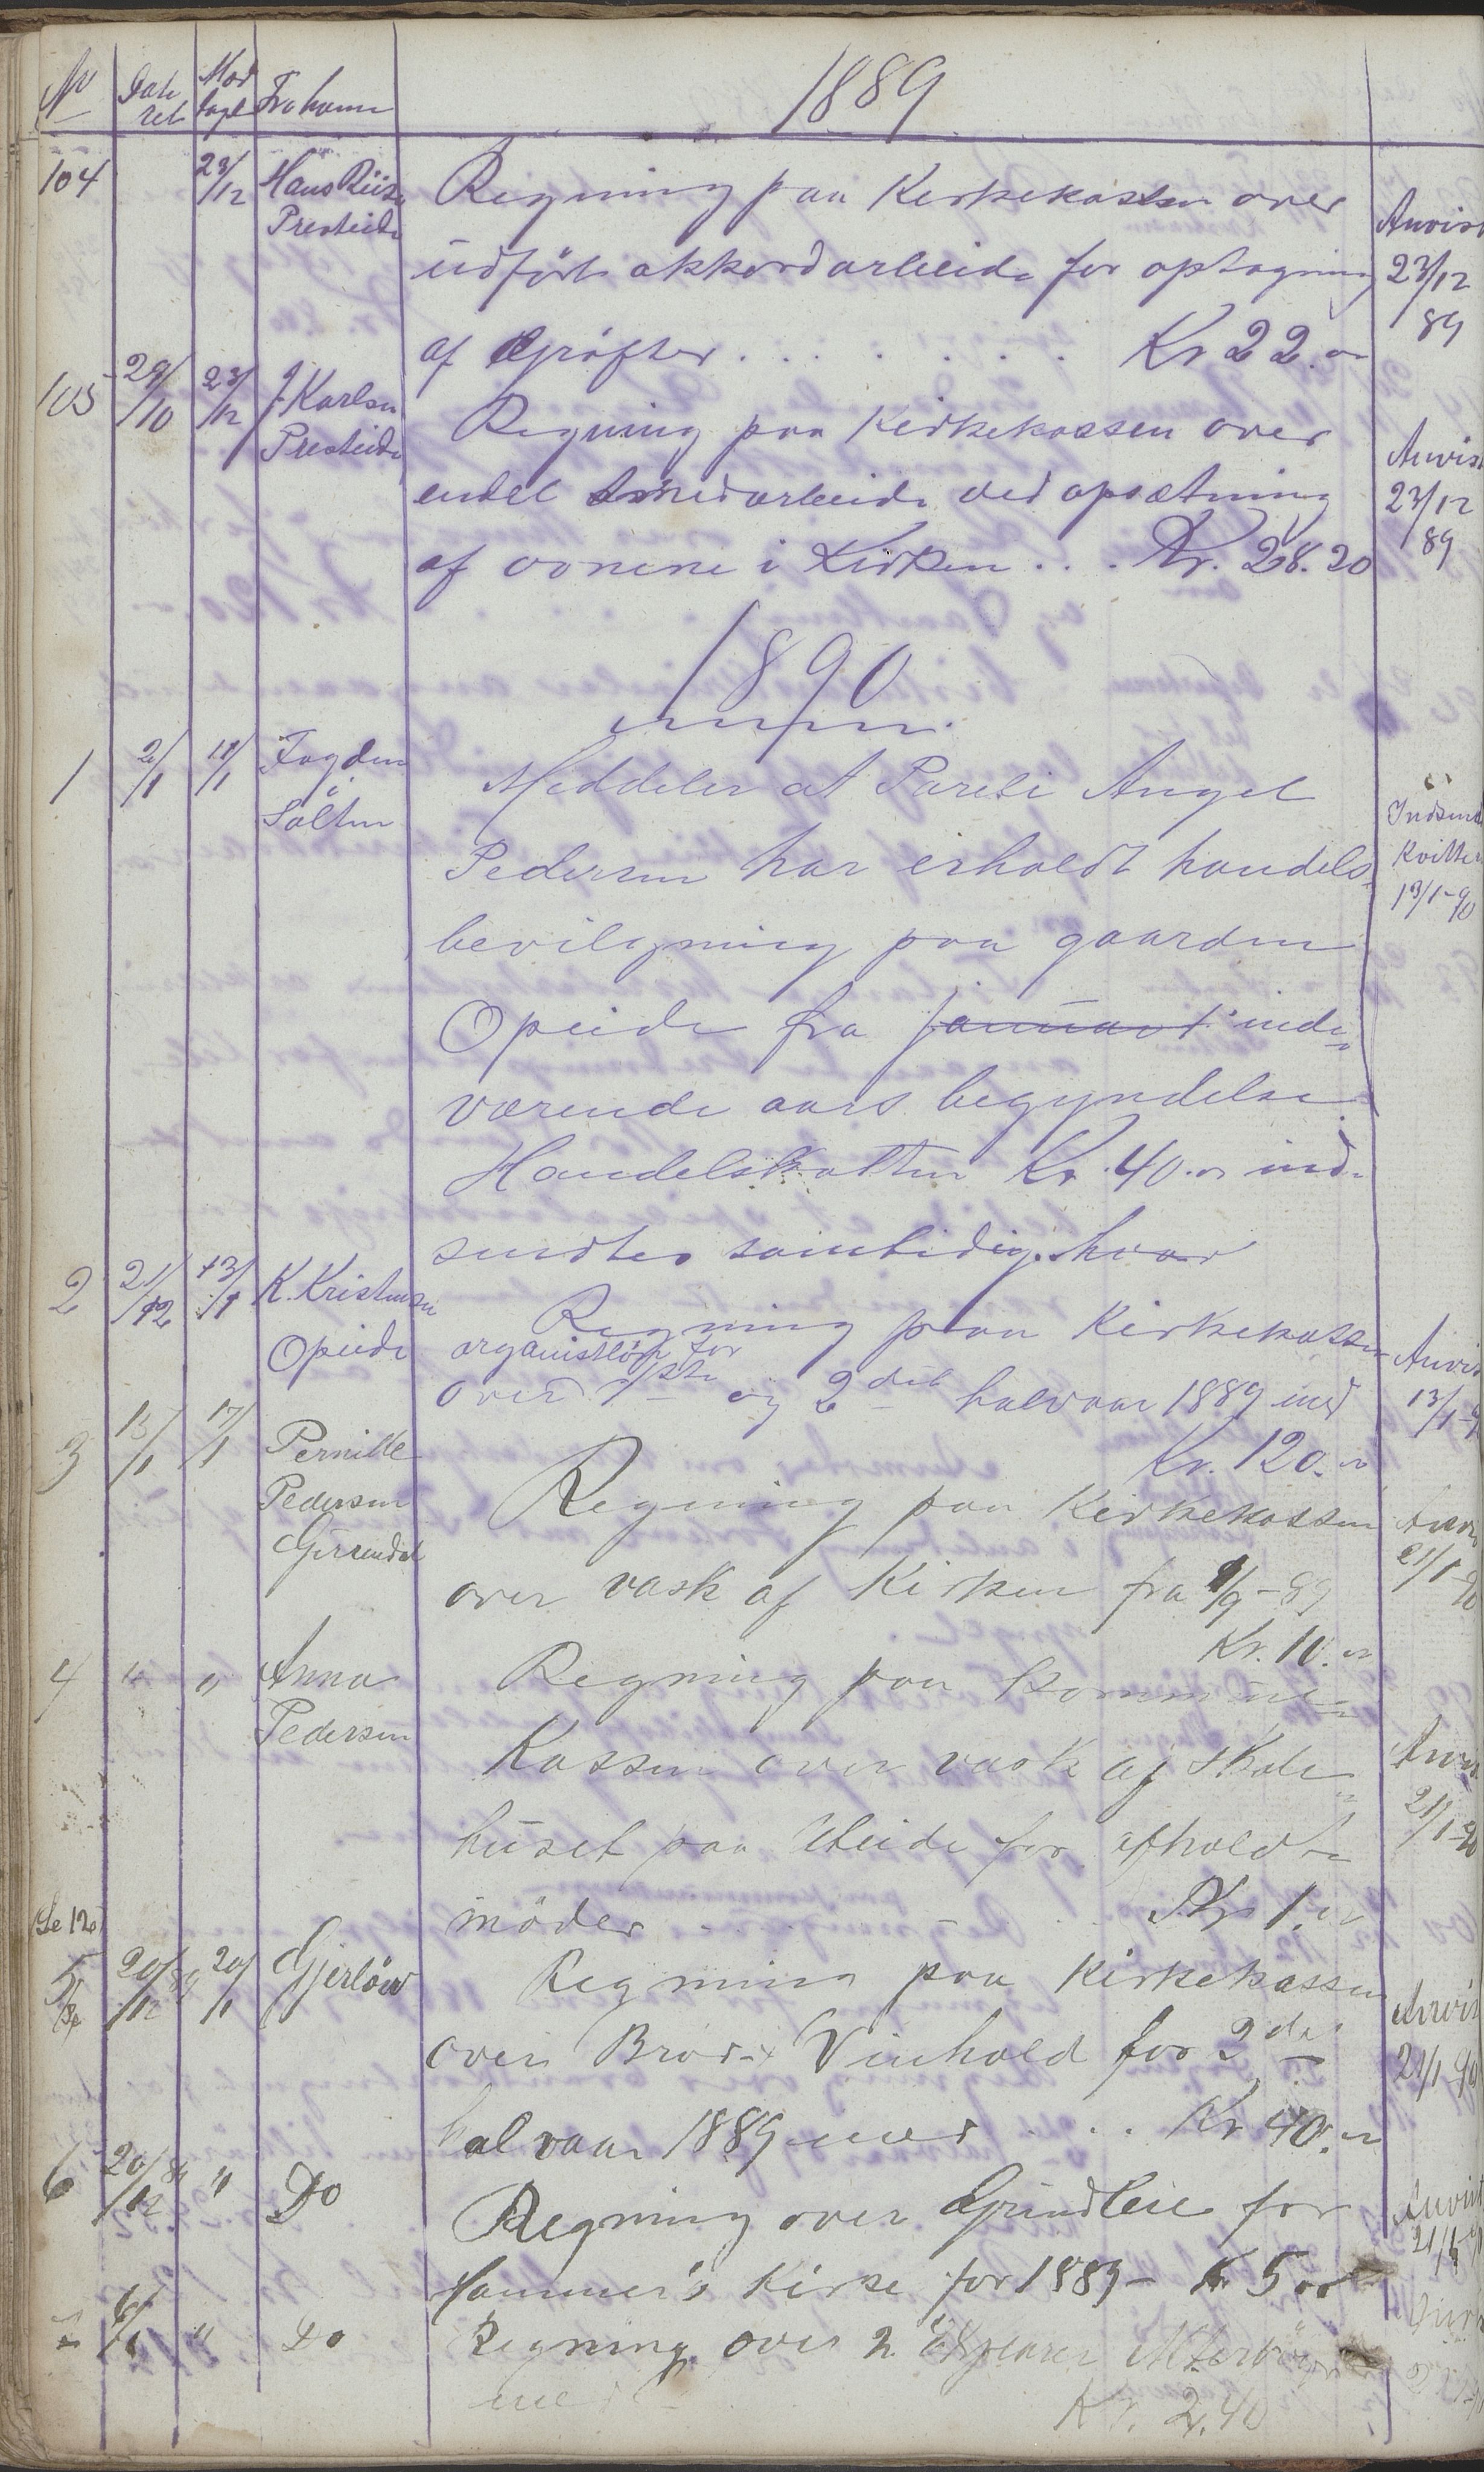 No Date ret Mod taget Fra hvem 1889
104 23/12 Hans Riise Regning paa Kirkekassen over Anvist
Presteide udført akkordarbeide for optagning 23/12
af Grøfter . . . . . . . Kr 22.00 89
105 29/10 23/12 J. Karlsen Regning paa Kirkekassen over Anvist
Presteide endel Smedarbeide ved opsætning 23/12
af ovnene i Kirken . . . Kr. 28.20 89
1890
1 2/1 11/1 Fogden i Meddeler at Pareli Angel
Salten Pedersen har erholdt handels- Indsendt Kvitter
bevilgning paa gaarden 13/1-90
Opeide fra Januar inde-
værende aars begyndelse.
Handelskatten Kr. 40.00 ind-
sendtes samtidig. hvor
2 21/12 13/1 K. Kristensen Regning paa Kirkekassen
Opeide organistløn for Anvist
over 1ste og 2det halvaar 1889 med 13/1-9
Kr. 120.00
3 15/1 17/1 Pernille
Pedersen Regning paa Kirkekassen
over vask af Kirken fra 1/9-89 21/1-90
Kr. 10.00
4 " " Anna Regning paa Kommune-
Pedersen Kassen over vask af Skole-
huset paa Uteide for afholdte 21/1-90
møder . . . . Kr 1.00
(Se 12)
5 20/12 89 20/1 Gjerløw Regning paa Kirkekassen
over Brød & Vinhold for 2det Anvist
halvaar 1889 med . . . Kr 40.00 21/1-90
6 20/12 89 " Do Regning over Grundleie for Anvist
Hammer's Kirke for 1889 - Kr 5 00
6/1 " Do Regning over 2
med Kr. 2.40